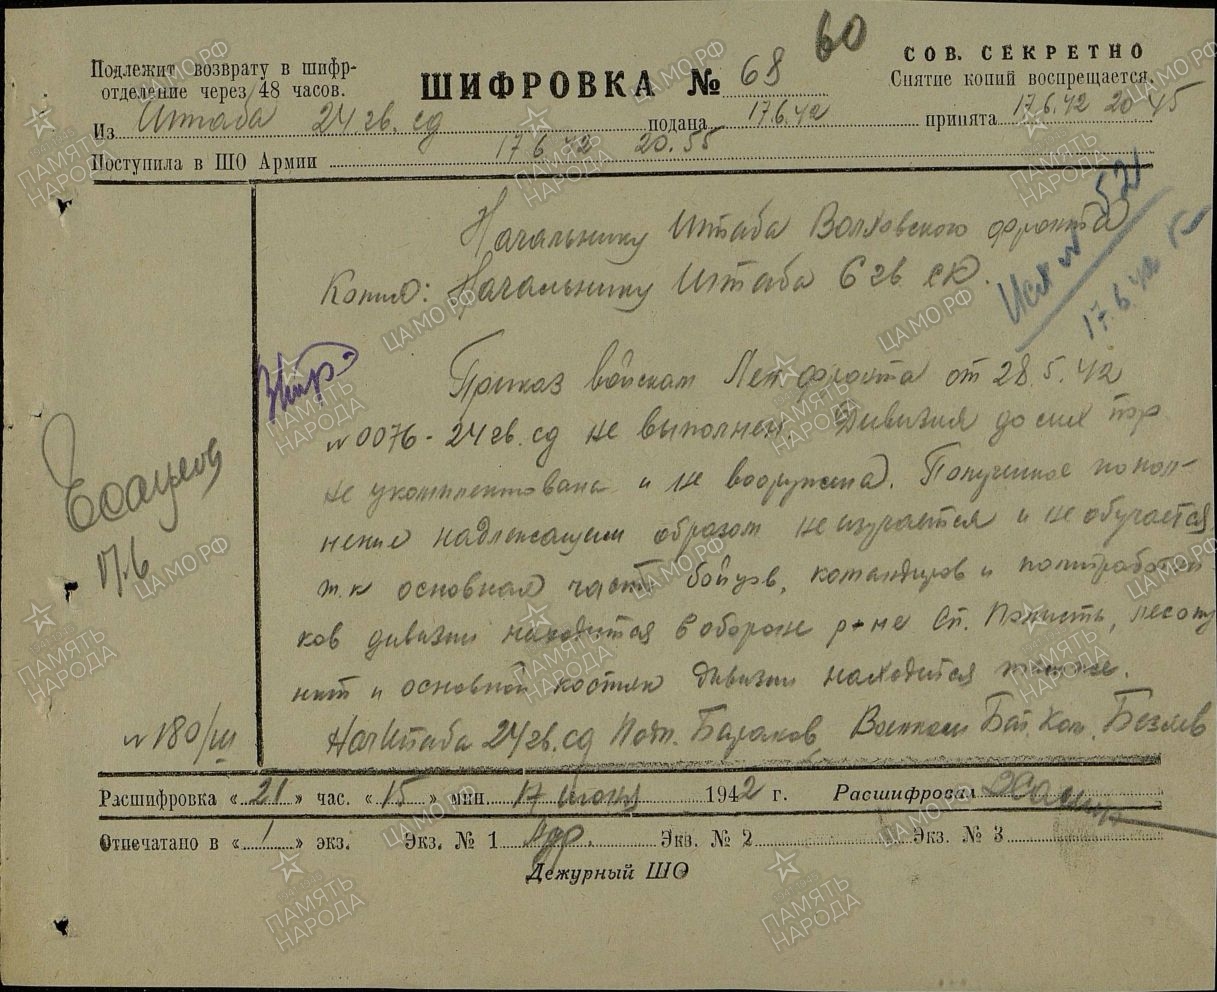 60
Подлежит возврату в шифр-
отделение через 48 часов.
ШИФРОВКА № 68
СОВ. СЕКРЕТНО
Снятие копий воспрещается.
Из Штаба 24 гв. сд подана 17.6.42 принята 17.6.42 20 45
Поступила в ШО Армии 17 6 42 20.55
Начальнику Штаба Волховского фронта
Копия: Начальнику Штаба 6 гв. ск.
Приказ войскам Лен фронта от 28.5.42
№ 0076 - 24 гв. сд не выполнен. Дивизия до сих пор
не укомплектована и не вооружена. Полученное попол-
нение надлежащим образом не изучается и не обучается
т.к основная часть бойцов, командиров и политработни
ков дивизии находится в обороне р-не Ст. Понисть,
и основной костяк дивизии находится также.
НачШтаба 24 гв. сд Полк. Военком Бат. Ком.
№ 180/ш
Расшифровка « 21 » час. « 15 » мин. 17 июня 1942 г. Расшифровал
Отпечатано в « 1 » экз. Экз. № 1 Адр. Экз. № 2 Экз. № 3
Дежурный ШО
17.6
17.6.42
ПАМЯТЬ НАРОДА
ЦАМО.РФ